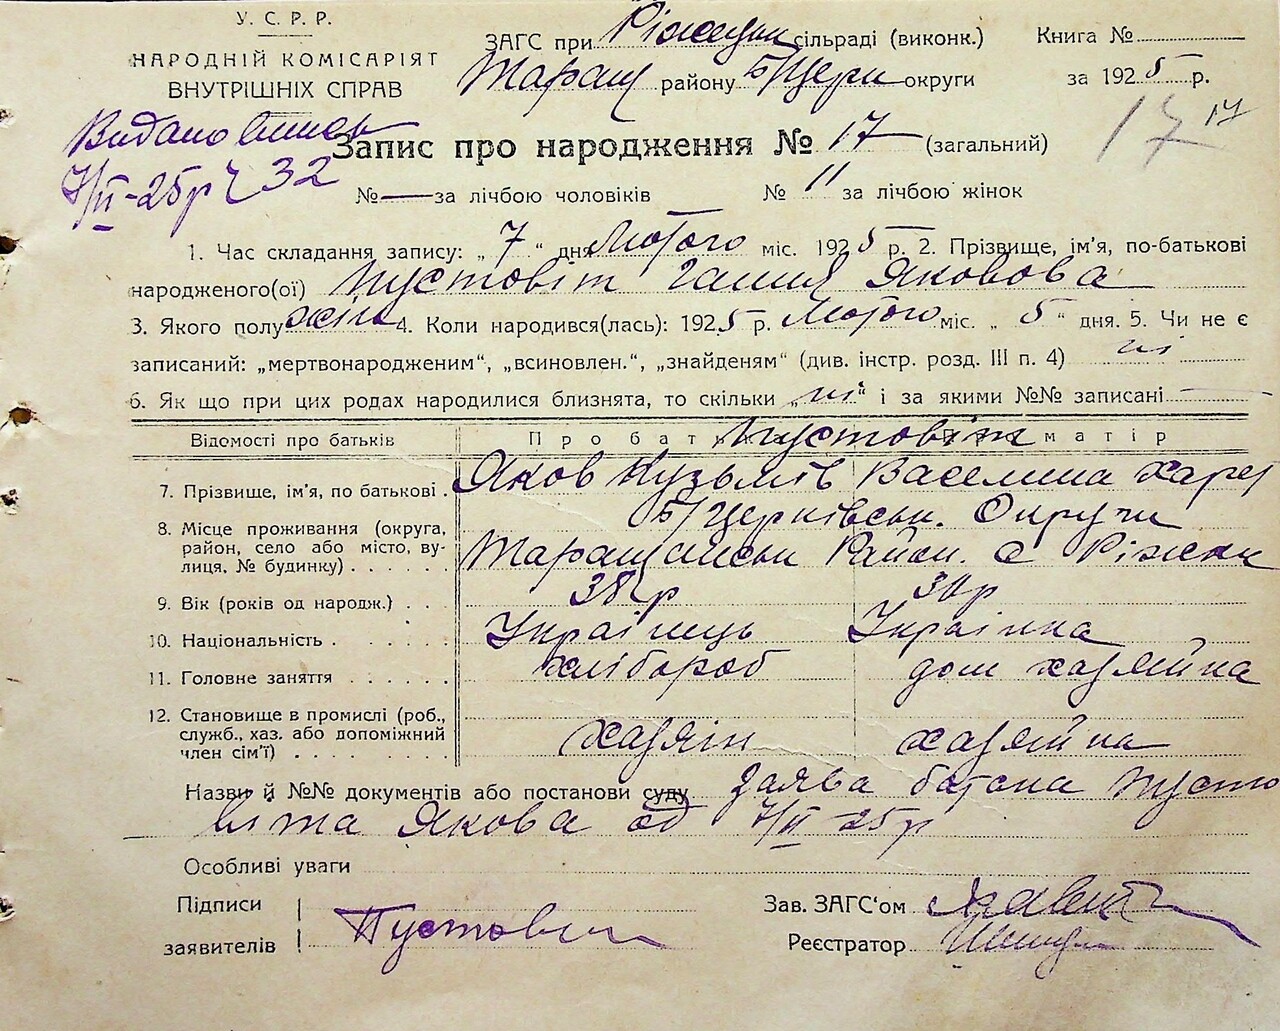 У. С. Р. Р.
НАРОДНІЙ КОМІСАРІЯТ
ВНУТРІШНІХ СПРАВ
ЗАГС при сільраді (виконк.) Книга №
Таращ району Б/Церк округи за 1925 р.
Видано
7/II-25р 32
Запис про народження № 17 (загальний)
17 17
№ — за лічбою чоловіків № 11 за лічбою жінок
1. Час складання запису: „ 7 “ дня Лютого міс. 1925 р. 2. Прізвище, ім’я, по-батькові
народженого(ої) Пустовіт Ганна Яковова
3. Якого полу жін 4. Коли народився(лась): 1925 р. Лютого міс. „ 5 “ дня. 5. Чи не є
записаний: „мертвонародженим“, „всиновлен.“, „знайденям“ (див. інстр. розд. III п. 4) ні
6. Як що при цих родах народилися близнята, то скільки „ ні “ і за якими №№ записані
Відомості про батьків Про бать Пустовіт матір
7. Прізвище, ім’я, по батькові . Яков Кузьмів Василина
8. Місце проживання (округа, Б/Церківськ. Округи
район, село або місто, ву-
лиця, № будинку) . . . . . . Таращанськ Район. с Ріжки
9. Вік (років од народж.) . . . 38 р р
10. Національність . . . . . . . Українець Українка
11. Головне заняття . . . . . . хлібороб дом хазяйка
12. Становище в промислі (роб.,
служб., хаз. або допоміжний
член сім’ї) . . . . . . . . хазяін хазяйка
Назви й №№ документів або постанови суду заява батька Пусто
віта Якова од 7/II-25р
Особливі уваги
Підписи
заявителів Пустовіт
Зав. ЗАГС‘ом
Реєстратор